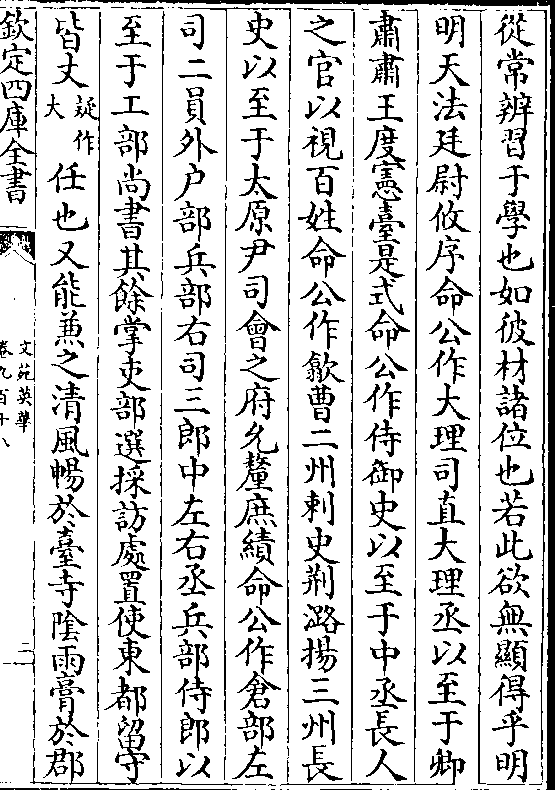 從常辨習于學也如彼材諸位也若此欲無顯得乎明
明天法廷尉攸序命公作大理司直大理丞以至于卿
肅肅王度憲臺是式命公作侍御史以至于中丞長人
之官以視百姓命公作歙曹二州刺史荆潞揚三州長
史以至于太原尹司會之府允釐庶績命公作倉部左
司二員外户部兵部右司三郎中左右丞兵部侍郎以
至于工部尚書其餘掌吏部選採訪處置使東都留守
皆丈疑作大任也又能兼之清風暢於臺寺陰雨膏於郡
欽定四庫全書
文苑英華
卷九百十八
二